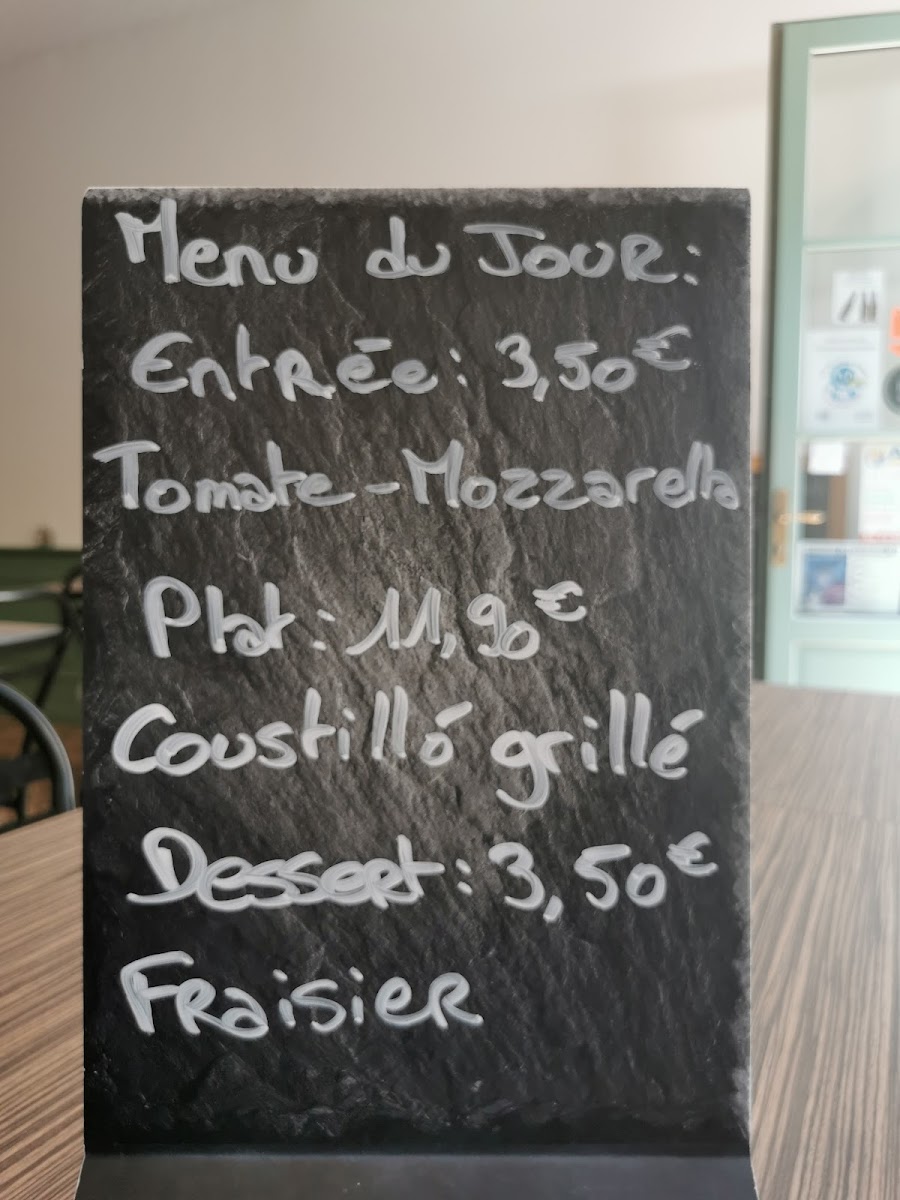 Menu du Jour:
Entrée: 3,50€
Tomate - Mozzarella
Plat: 11,90€
Coustilló grillé
Dessert: 3,50€
Fraisier